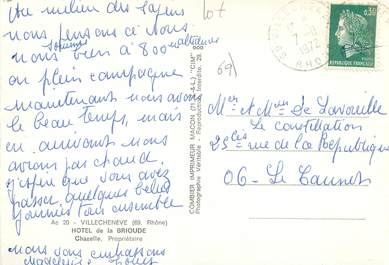 Au milieu des sapins
nous pensons à vous
nous sommes bien à 800 m altitude
en pleine campagne
maintenant nous avons
le beau temps, mais
en arrivant nous
avions pas chaud.
J'espère que vous avez
passer quelques belles
journées tous ensemble
Ac 20 - VILLECHENEVE (69, Rhône)
HOTEL de la BRIOUDE
Chazelle, Propriétaire
nous vous embrassons
COMBIER IMPRIMEUR MACON (S.-&-L.) "CIM"
Photographie Véritable - Reproduction Interdite.
69
0,30
REPUBLIQUE FRANÇAISE
1972
Mr et Mme De Lavoreille
Le constellation
25 rue de la République
06 - Le Cannet